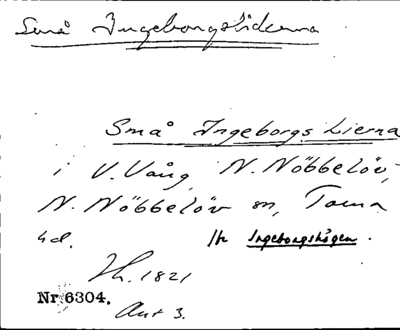 Små Ingeborgsliderna
Små Ingeborgs Lierna
i V. Vång, N. Nöbbelöv,
N. Nöbbelöv sn, Torna
hd. Jfr Ingeborgshögen.
Jh. 1821
Nr 6304.
Aut 3.